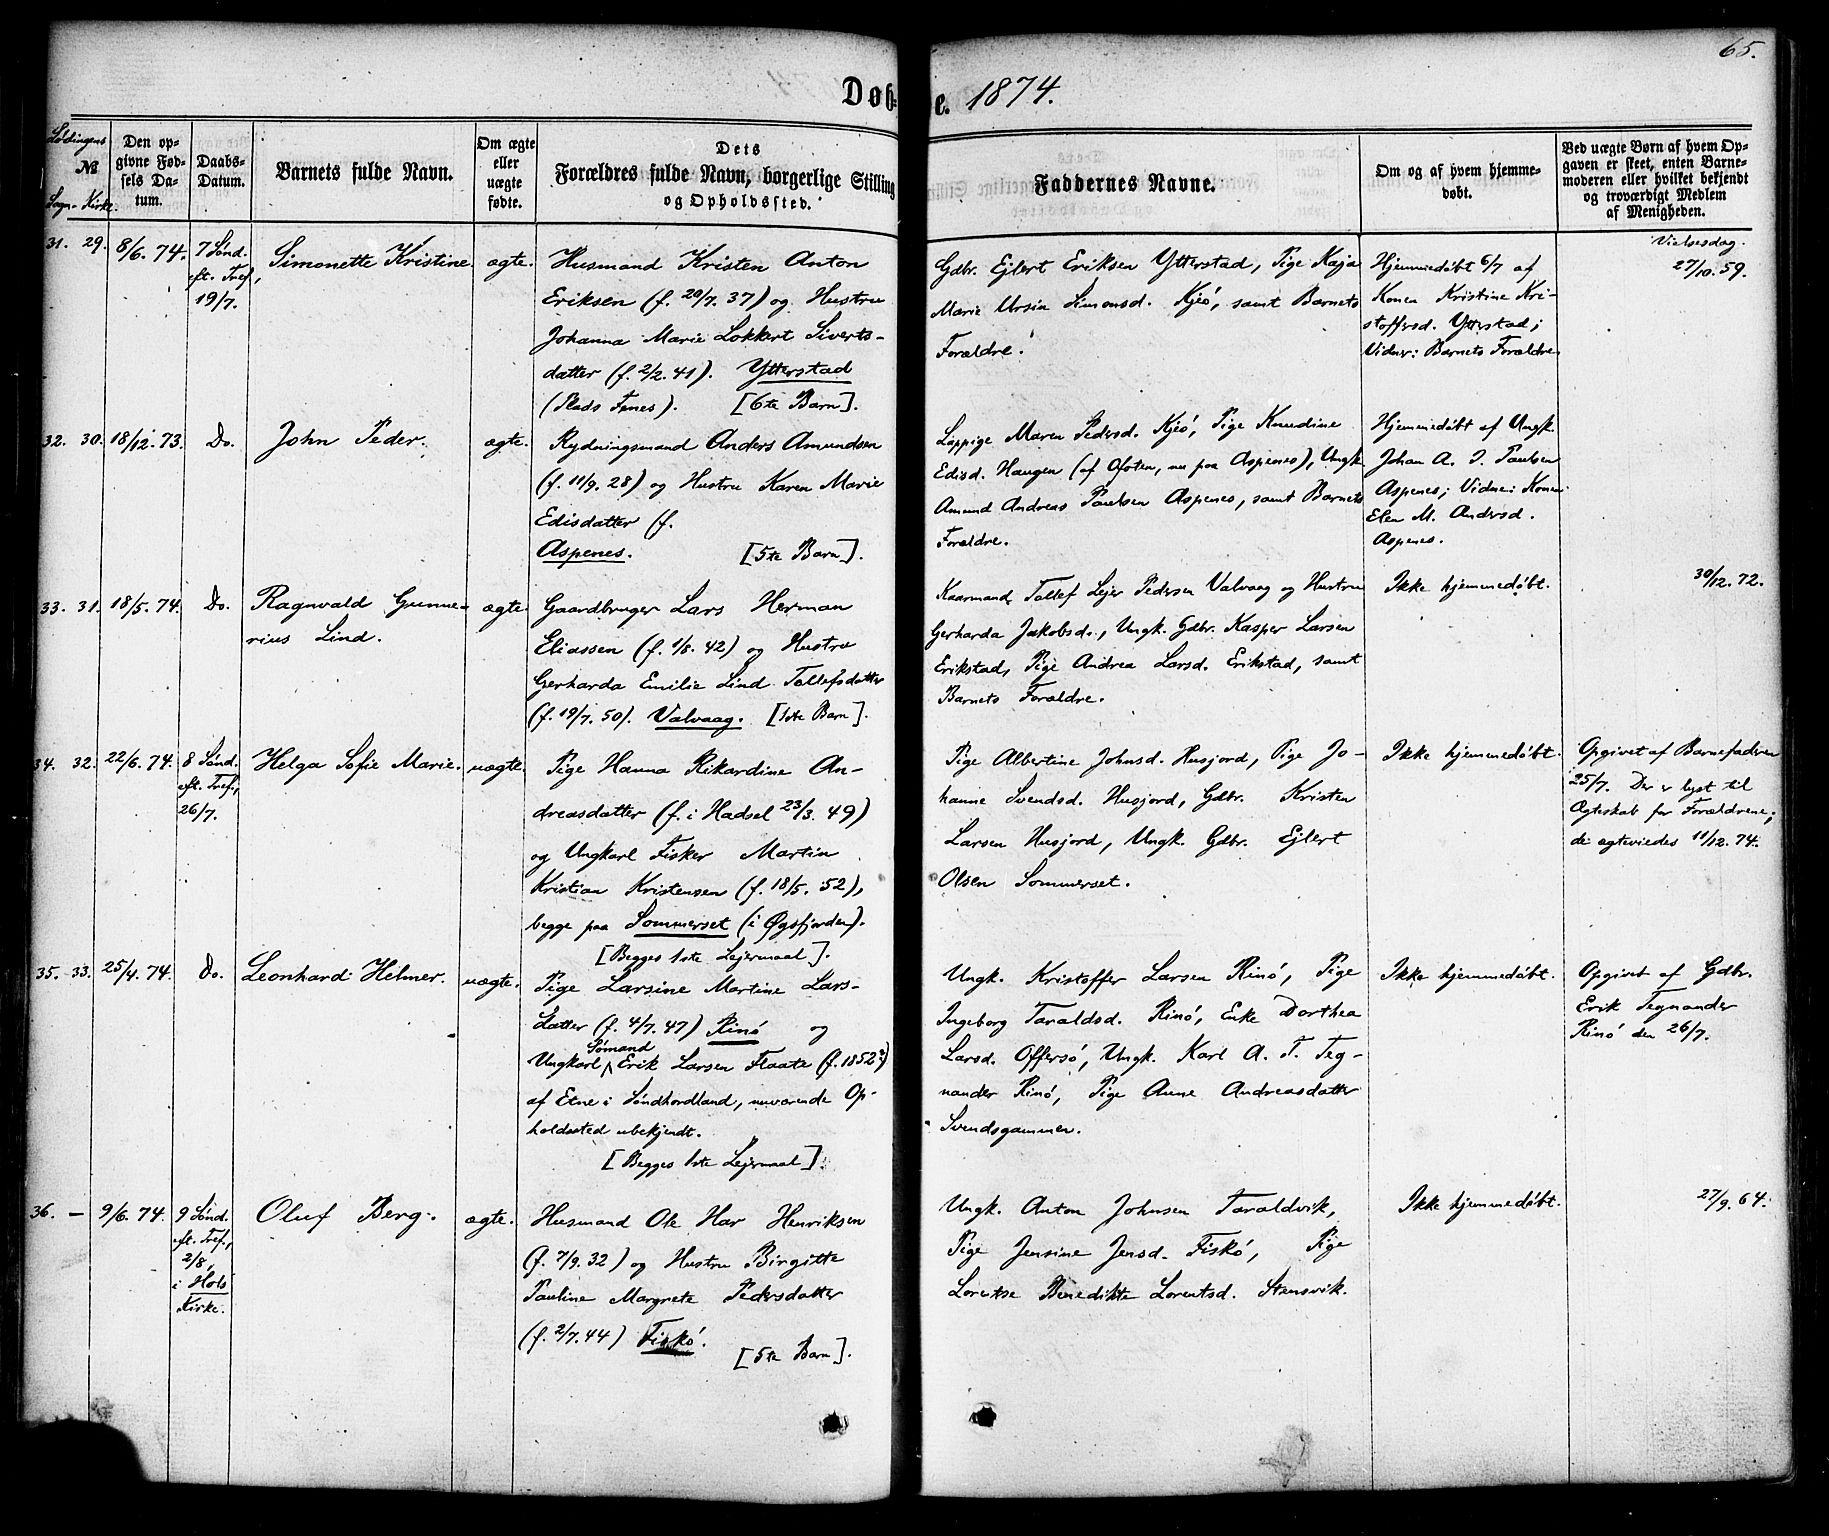 65.
Døbte. 1874.
Lødingens
№
Sogn- Kirke.
Den opgivne Fødsels Datum.
Daabs-Datum.
Barnets fulde Navn.
Om ægte eller uægte fødte.
Dets
Forældres fulde Navn, borgerlige Stilling
og Opholdssted.
Faddernes Navne.
Om og af hvem hjemmedøbt.
Ved uægte Børn af hvem Opgaven er skeet, enten Barnemoderen eller hvilket bekjendt og troværdigt Medlem af Menigheden.
31. 29. 8/6. 74. 7 Sønd.
eft. Tref.,
19/7.
Simonette Kristine. ægte.
Husmand Kristen Anton
Eriksen (f. 20/7. 37) og Hustru
Johanna Marie Lokkert Siverts-
datter (f. 2/2. 41). Ytterstad
(Plads Fones). [6te Barn].
Gdbr. Ejlert Eriksen Ytterstad, Pige Kaja
Marie Ursin Simonsd. Kjeö, samt Barnets
Forældre.
Hjemmedøbt 6/7 af
Konen Kristine Kri-
stoffersd. Ytterstad;
Vidner: Barnets Forældre.
Vielsesdag.
27/10. 59.
32. 30. 18/12. 73. Do. John Peder. ægte.
Rydningsmand Anders Amundsen
(f. 11/9. 28) og Hustru Karen Marie
Edisdatter (f.
Aspenes. [5te Barn].
Lappige Maren Pedersd. Kjeö, Pige Knudine
Edisd. Haugen (af Ofoten, nu paa Aspenes), Ungk.
Amund Andreas Paulsen Aspenes, samt Barnets
Forældre.
Hjemmedøbt af Ungk.
Johan A. J. Paulsen
Aspenes; Vidne: Konen
Elen M. Andersd.
Aspenes.
33. 31. 18/5. 74. Do. Ragnvald Gunne-
rius Lind. ægte.
Gaardbruger Lars Herman
Eliassen (f. 1/8. 42) og Hustru
Gerharda Emilie Lind Tollefsdatter
(f. 19/7. 50). Valvaag. [1ste Barn].
Kaarmand Tollef Lejer Pedersen Valvaag og Hustru
Gerharda Jakobsd., Ungk. Gdbr. Kasper Larsen
Erikstad, Pige Andrea Larsd. Erikstad, samt
Barnets Forældre.
Ikke hjemmedøbt.
30/12. 72.
34. 32. 22/6. 74. 8 Sønd.
eft. Tref.,
26/7.
Helga Sofie Marie. uægte.
Pige Hanna Rikardine An-
dreasdatter (f. i Hadsel 23/3. 49)
og Ungkarl Fisker Martin
Kristian Kristensen (f. 18/5. 52),
begge paa Sommerset (i Øgsfjorden).
[Begges 1ste Lejermaal].
Pige Albertine Johnsd. Husjord, Pige Jo-
hanne Svendsd. Husjord, Gdbr. Kristen
Larsen Husjord, Ungk. Gdbr. Ejlert
Olsen Sommerset.
Ikke hjemmedøbt.
Opgivet af Barnefaderen
25/7. Der er lyst til
Ægteskab for Forældrene;
de ægteviedes 11/12. 74.
35. 33. 25/4. 74. Do. Leonhard Helmer. uægte.
Pige Larsine Martine Lars-
datter (f. 4/7. 47) Rinö og
Ungkarl Sømand Erik Larsen Flaate (f. 1852?)
af Etne i Søndhordland, nuværende Op-
holdssted ubekjendt.
[Begges 1ste Lejermaal].
Ungk. Kristoffer Larsen Rinö, Pige
Ingeborg Taraldsd. Rinö, Enke Dorthea
Larsd. Offersö, Ungk. Karl A. T. Teg-
nander Rinö, Pige Anne Andreasdatter
Svendsgammen.
Ikke hjemmedøbt.
Opgivet af Gdbr.
Erik Tegnander
Rinö den 26/7.
36. – 9/6. 74. 9 Sønd.
eft. Tref.,
2/8,
i Hols
Kirke.
Oluf Berg. ægte.
Husmand Ole Har Henriksen
(f. 7/9. 32) og Hustru Birgitte
Pauline Margrete Pedersdatter
(f. 2/7. 44) Fiskö. [5te Barn].
Ungk. Anton Johnsen Taraldvik,
Pige Jensine Jensd. Fiskö, Pige
Lorentse Benedikte Lorentsd. Stensvik.
Ikke hjemmedøbt.
27/9. 64.